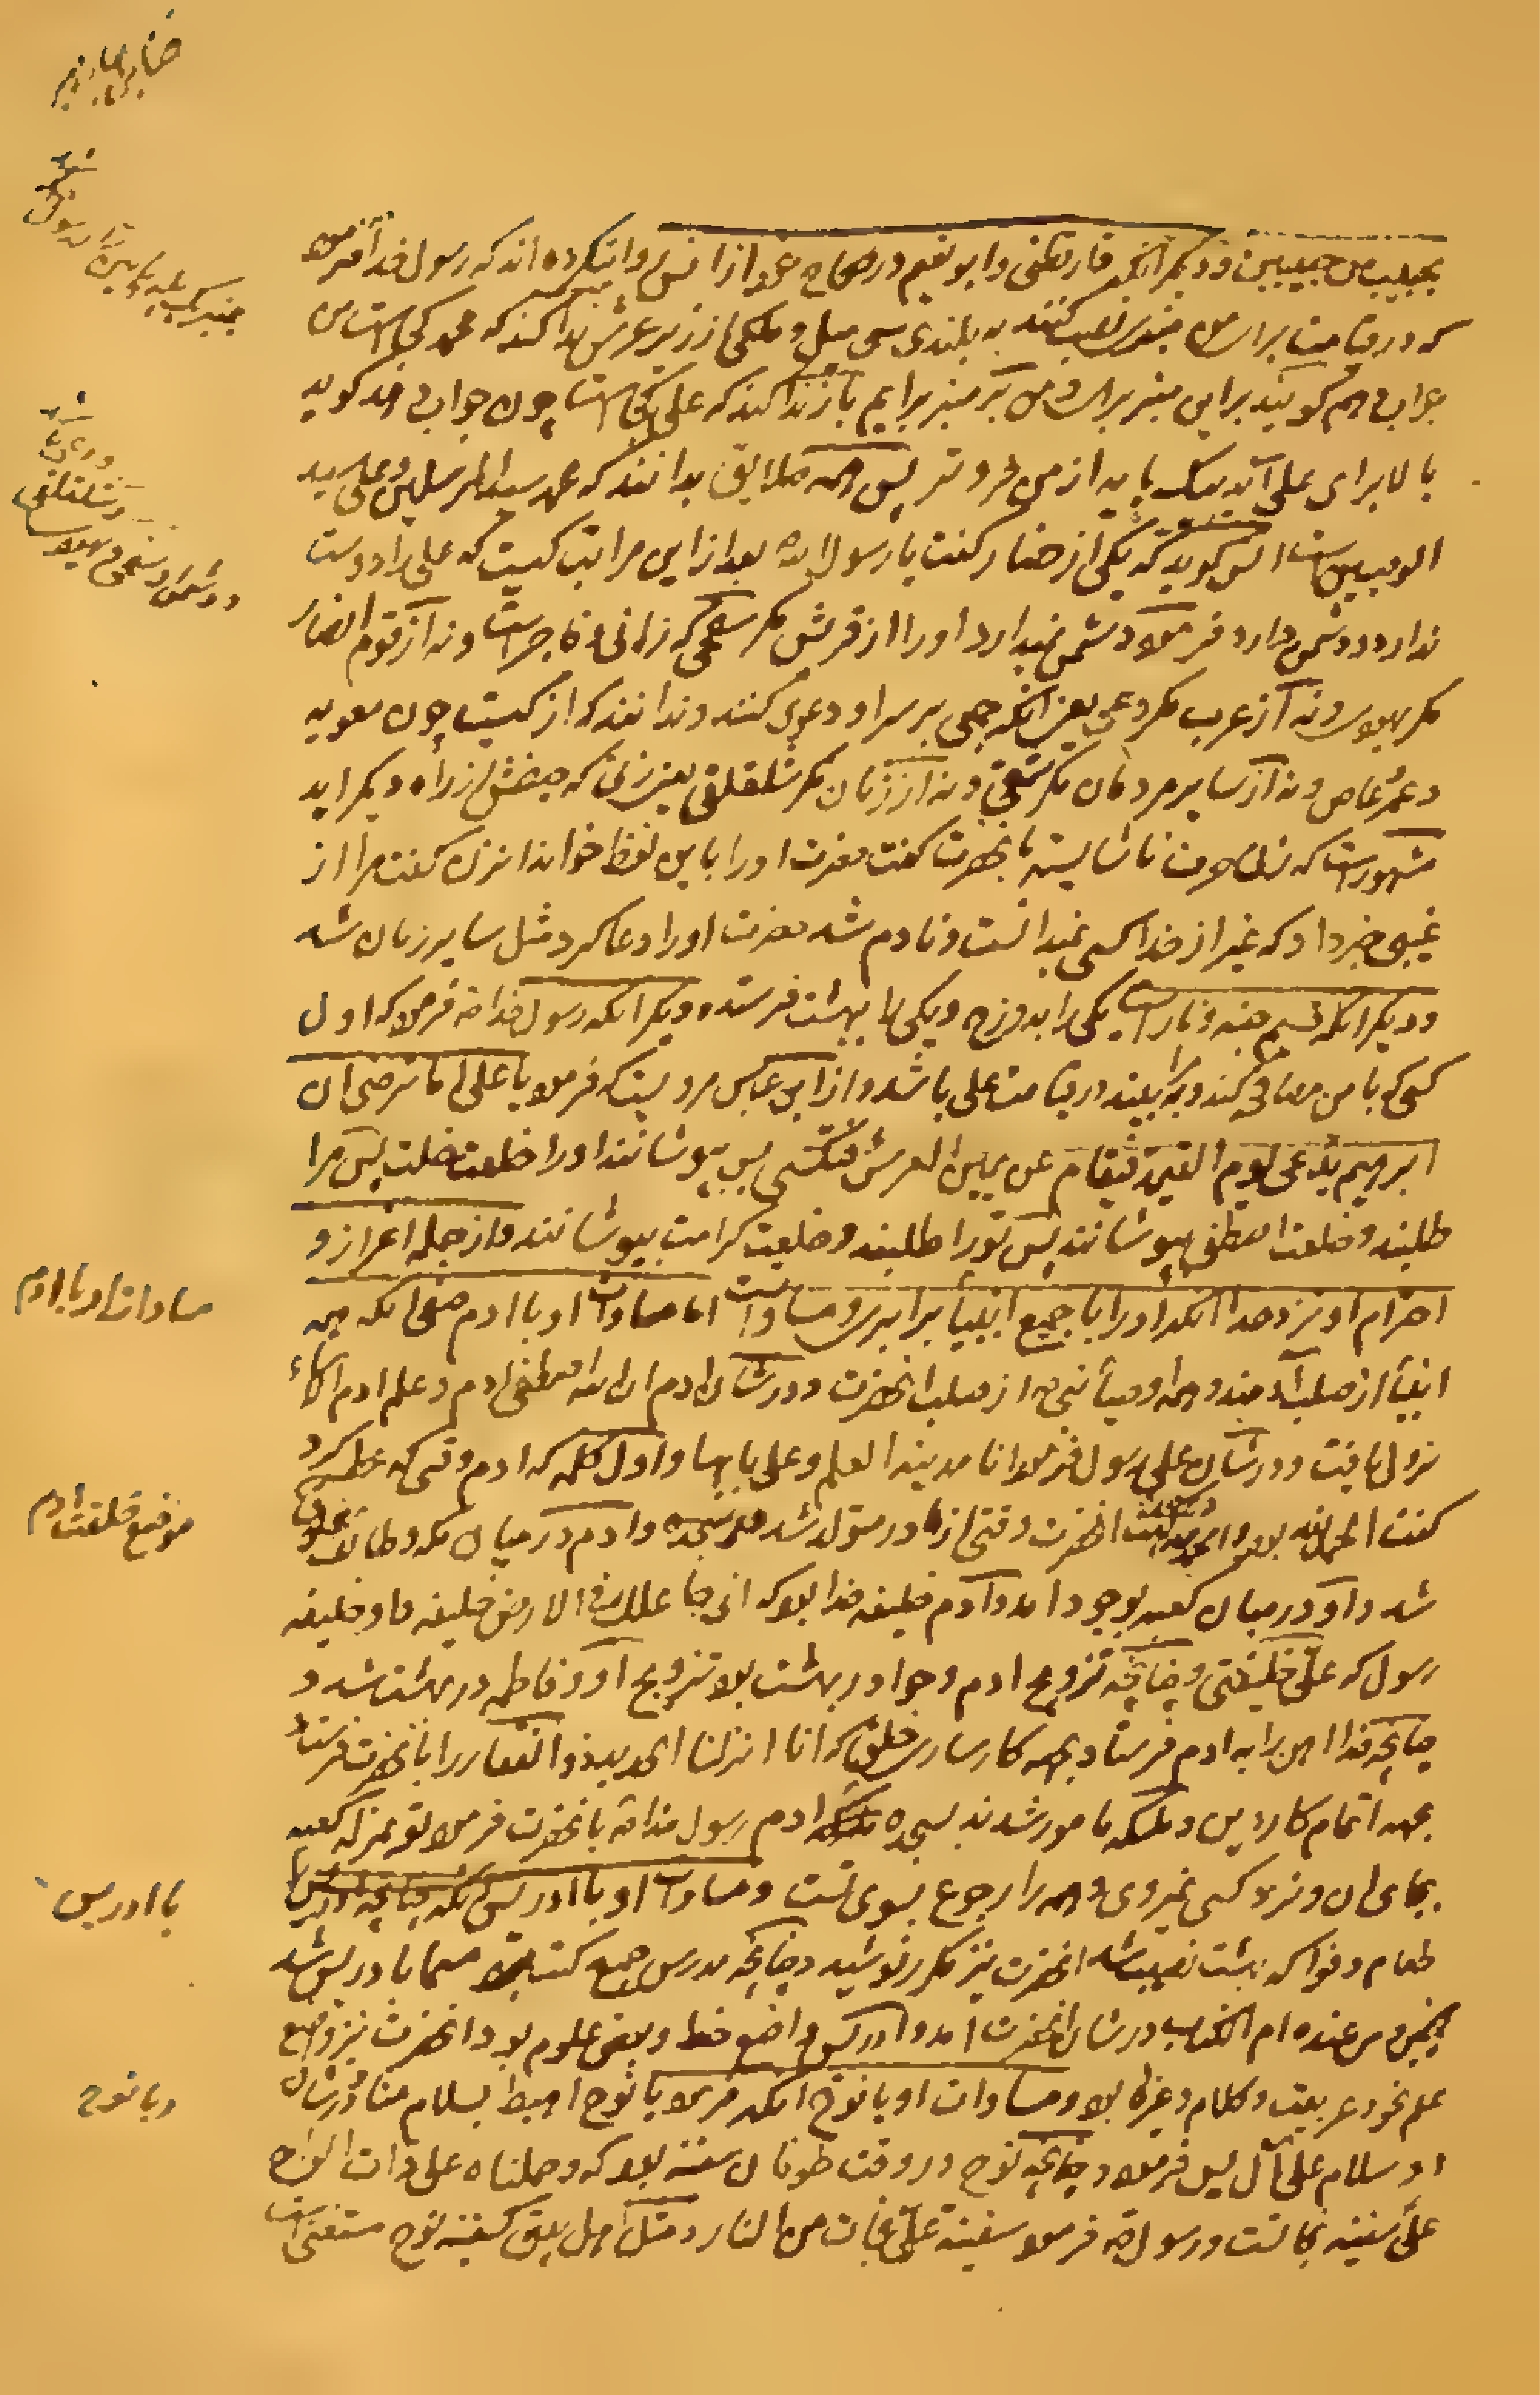 بحبیب من حبیبین و دیگر آنکه دارقطنی و ابو نعیم در صحاح خود از انس روایت کرده‌اند که رسول خدا فرمود
که در قیامت برای من منبری نصب کنند به بلندی سی میل و ملکی از زیر عرش ندا کند که محمد کجاست من
جواب دهم گویند برای منبر برا پس من بر منبر برایم باز ندا کند که علی کجاست چون جواب دهد گوید
بالا برای علی آید بیک پایه از من فروتر پس همه خلایق بدانند که محمد سید المرسلین و علی سید
الوصیین است انس گوید که یکی از حضار گفت یا رسول الله بعد از این مراتب کیست که علی را دوست
ندارد و دشمن دارد فرمود دشمن نمیدارد او را از قریش مگر سفحی که زانی و فاجر است و نه از قوم انصار
مگر یهودی و نه از عرب مگر دعی یعنی آنکه جمعی بر سر او دعوی کنند و ندانند که از کیست چون معویه
و عمرو عاص و نه از سایر مردمان مگر شقی و نه از زنان مگر سلقلقی یعنی زنی که حیضش از راه دیگر اید
مشهور است که زنی حرف ناشایسته بانحضرت گفت حضرت او را باین لفظ خواند انزن گفت مرا از
غیبی خبر داد که غیر از خدا کسی نمیدانست و نادم شد حضرت او را دعا کرد مثل سایر زنان شد
و دیگر آنکه قسیم جنه و نار است یکی را بدوزخ و یکی را ببهشت فرستد و دیگر آنکه رسول خدا ص فرمود که اول
کسی که با من مصافحه کند و مرا بیند در قیامت علی باشد و از ابن عباس مرویست که فرمود یا علی اما ترضی ان
ابرهیم یدعی یوم القیمة فیقام عن یمین العرش فیکسی پس بپوشانند او را خلعت خلت پس مرا
طلبند و خلعت اصطفی بپوشانند پس تو را طلبند و خلعت کرامت بپوشانند و از جمله اعزاز و
احترام او نزد خدا آنکه او را با جمیع انبیا برابری و مساواتست اما مساوات او با ادم صفی انکه همه
انبیا از صلب آدمند و همه اوصیا نبی ص از صلب انحضرت و در شان ادم ان الله اصطفی ادم و علم ادم الاسماء
نزول یافت و در شان علی رسول فرمود انا مدینة العلم و علی بابها و اول کلمه که ادم وقتی که عطسه کرد
گفت الحمد لله بود و انحضرت وقتی از مادر متولد شد سجده و ادم در میان مکه و طایف مخلوق
شد و او در میان کعبه بوجود امد و آدم خلیفه خدا بود که انی جاعلک فی الارض خلیفه و او خلیفه
رسول که علی خلیفتی و چنانچه تزویج ادم و حوا در بهشت بود تزویج او و فاطمه در بهشت شد و
چنانچه خدا اهن را به ادم فرستاد بجهه کارسازی خلق که انا انزلنا الحدید ذوالفقار را بانحضرت فرستاد
بجهه اتمام کار دین و ملئکه مامور شدند بسجده ادم رسول خدا ص بانحضرت فرمود تو بمنزله کعبه
بجای ان و نزد کسی نمیروی و همه را رجوع بسوی تست و مساوات او با ادریس آنکه چنانچه ادریس را
طعام و فواکه بهشت نصیب شد انحضرت نیز مکرر نوشید و چنانچه مدرس جمیع کتب بود مسما بادریس شد
همچنین و من عنده ام الکتاب در شان انحضرت امد و ادریس واضع خط و بعضی علوم بود انحضرت نیز واضع
علم نحو و عربیت و کلام و غیره بود و مساوات او با نوح آنکه فرمود یا نوح اهبط بسلام منا و در شان
او سلام علی آل یس فرمود و چنانچه نوح در وقت طوفان سفینه بود که و حملناه علی ذات الواح
علی سفینه نجاتست و رسول ص فرمود سفینة علی نجات من النار و مثل اهل بیتی کسفینه نوح مستغنی است
منبر یک پایه پایین‌تر از رسول
شد
و دعی
و سلقلقی
دشمن او سفحی و یهود
مساوات او با ادم
موضع خلقت ادم
با ادریس
و با نوح